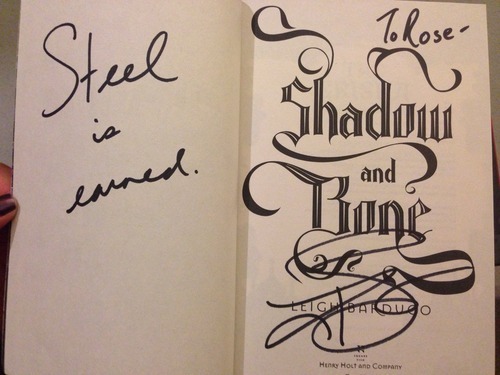 Steel
is
earned.
To Rose-
Shadow
and
Bone
LEIGH BARDUGO
HENRY HOLT AND COMPANY